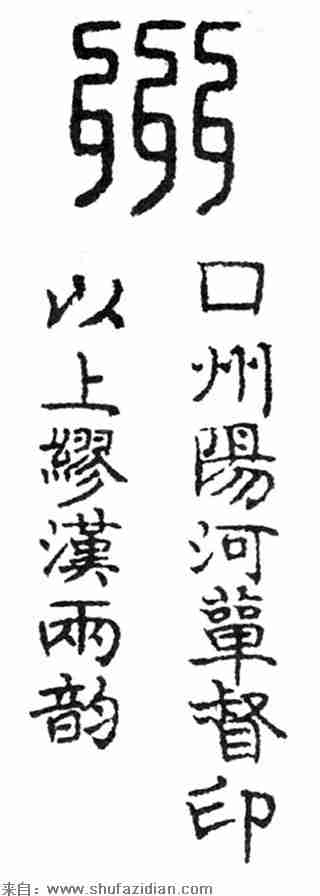 州
口州陽河單督印
以上繆漢兩韵
来自：www.shufazidian.com